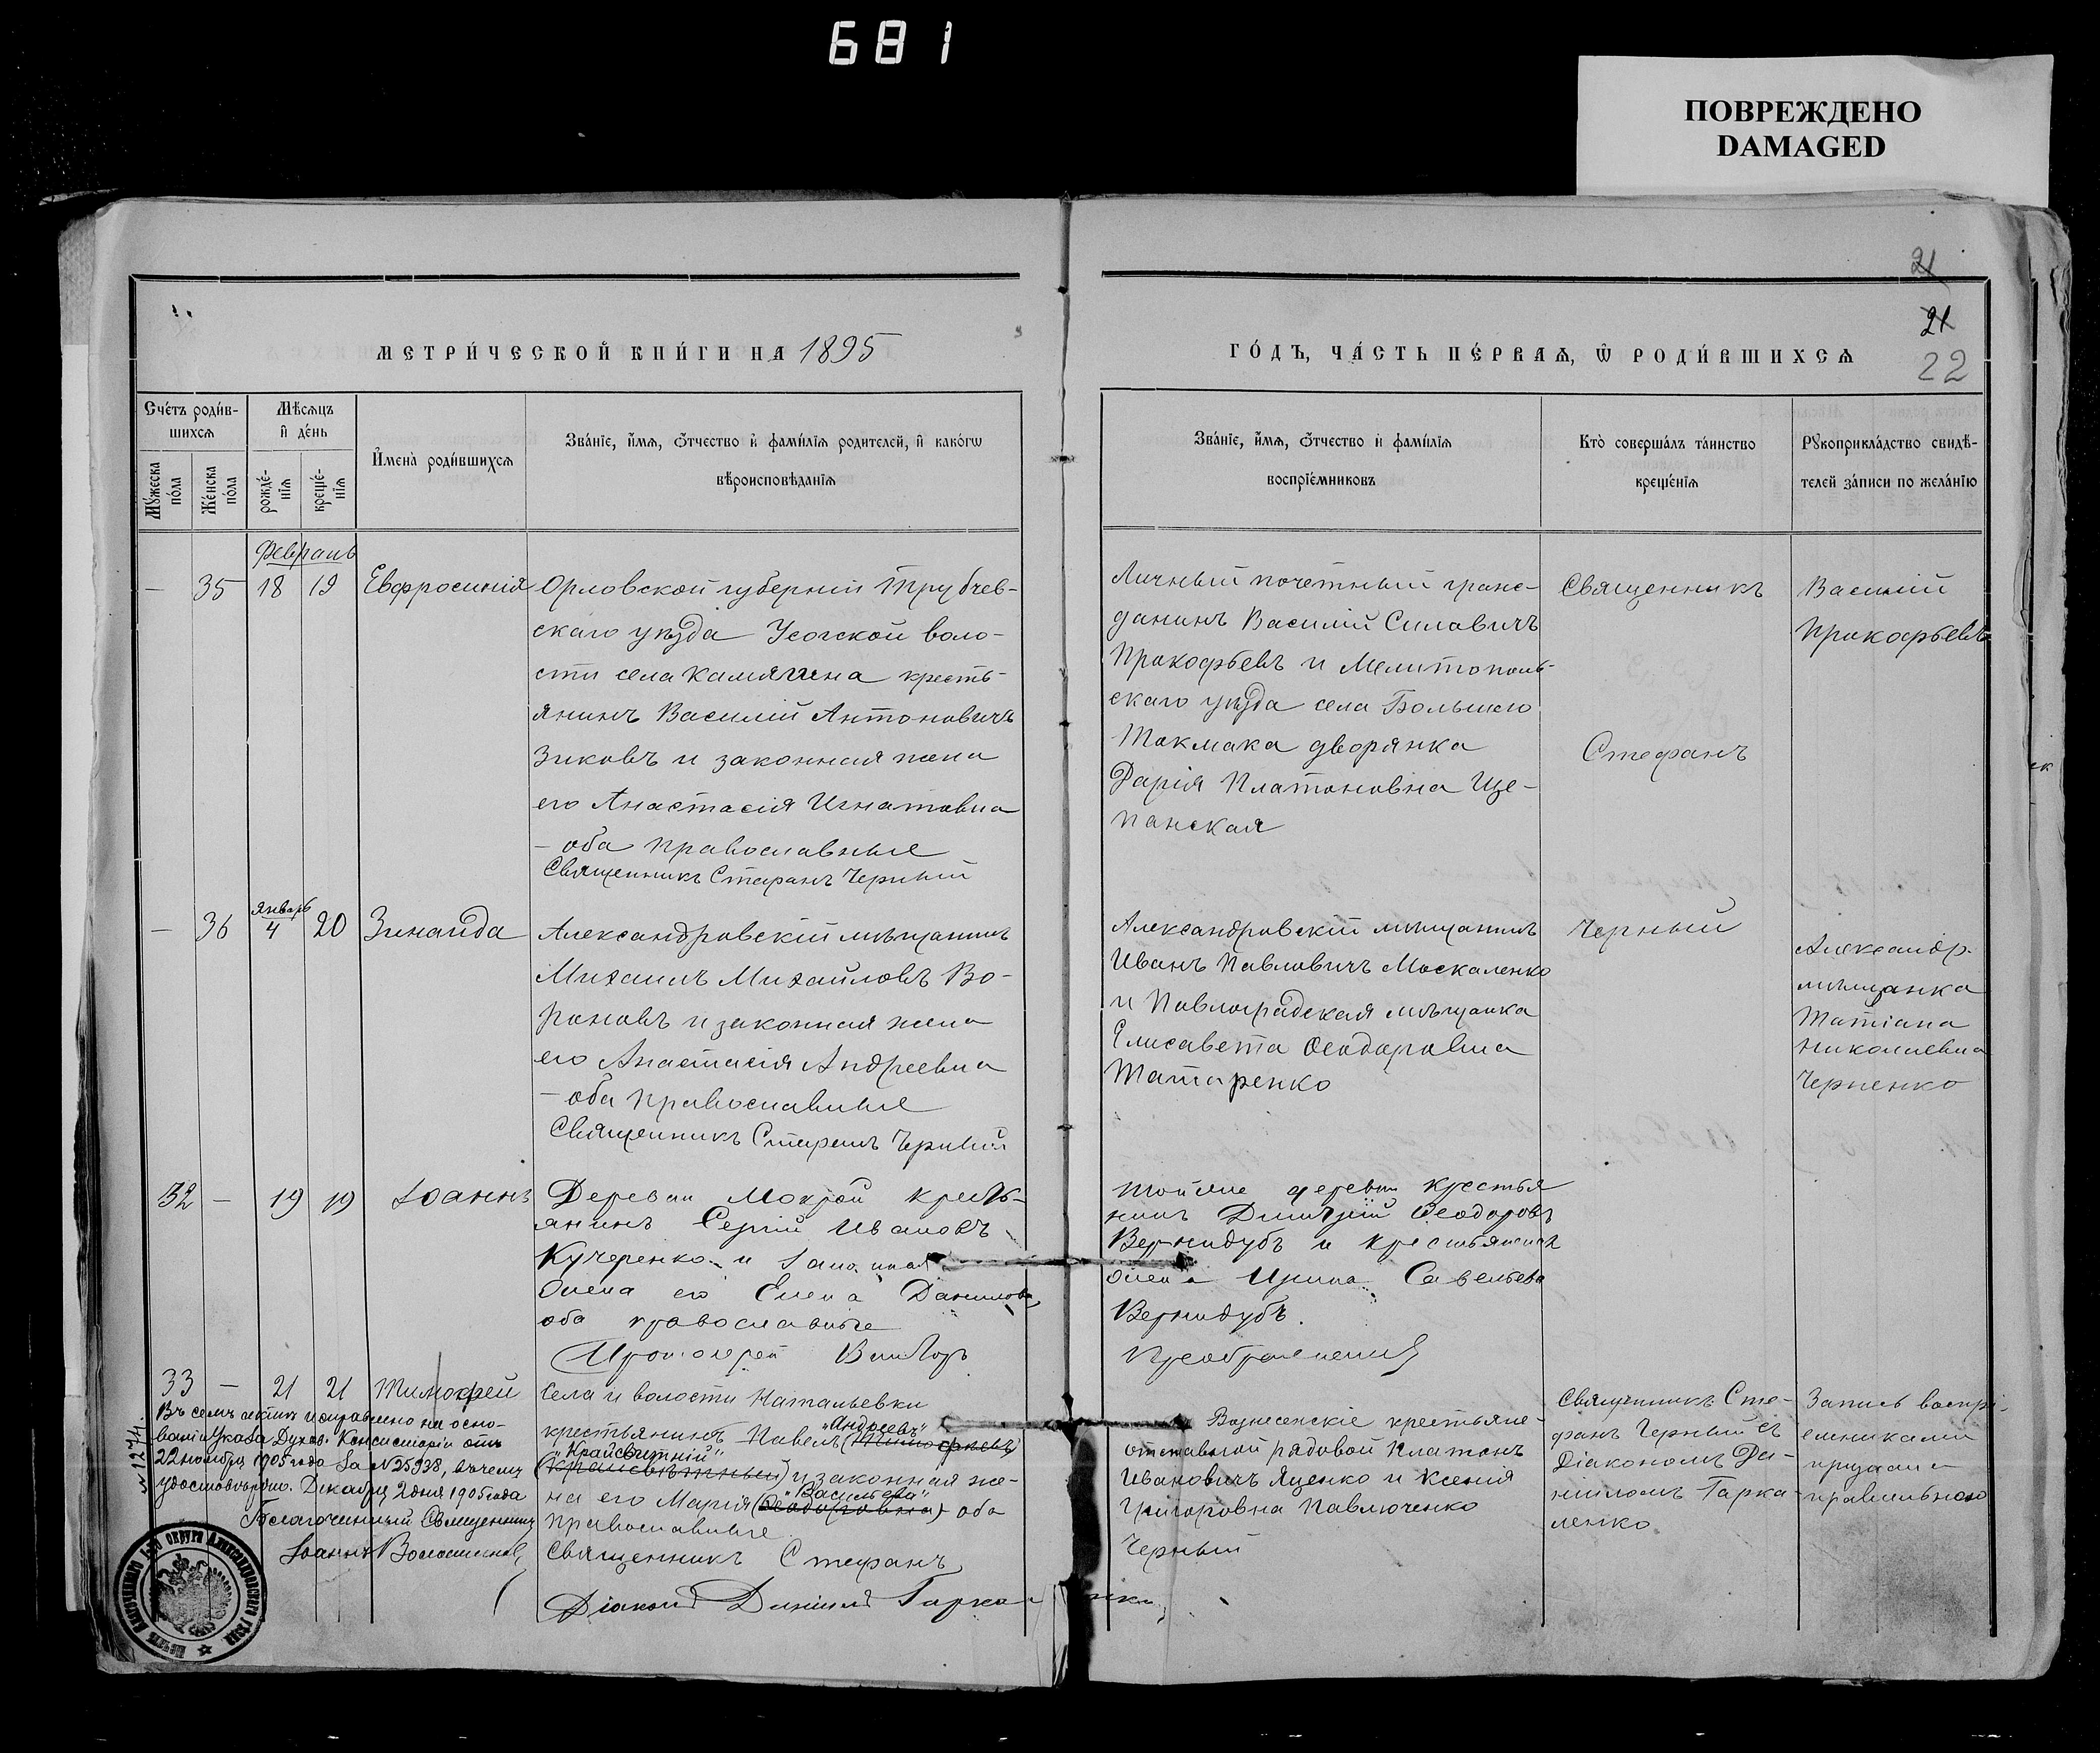 681
ПОВРЕЖДЕНО
DAMAGED
21
21
22
МЕТРИ́ЧЕСКОЙ КНИ́ГИ НА 1895
ГО́ДЪ, ЧА́СТЬ ПЕ́РВАѦ, Ѿ РОДИ́ВШИХСѦ
Сче́тъ роди́в-
шихсѧ
Мѣ́сѧцъ
и҆ де́нь
Му́жеска
по́ла
Же́нска
по́ла
рожде́-
нїѧ
креще́-
нїѧ
И҆мена̀ роди́вшихсѧ
Зва́нїе, и҆́мѧ, ѻ҆́тчество и҆ фами́лїѧ родителей, и҆ како́гѡ
вѣроисповѣданїѧ
Зва́нїе, и҆́мѧ, ѻ҆́тчество и҆ фами́лїѧ
воспрїе́мниковъ
Кто̀ соверша́лъ та́инство
креще́нїѧ
Рꙋкоприкла́дство свидѣ-
телей за́писи по жела́нїю
Февраль
— 35 18 19 Евфросинія
Орловской губерніи Трубчев-
скаго уѣзда Усогской воло-
сти села Камягина кресть-
янинъ Василій Антоновичъ
Зиковъ и законная жена
его Анастасія Игнатовна
– оба православные
Священникъ Стефанъ Черный
Личный почетный граж-
данинъ Василій Силовичъ
Прокофьевъ и Мелитополь-
скаго уѣзда села Большого
Токмака дворянка
Дарія Платоновна Ще-
панская
Священникъ
Стефанъ
Черный
Василій
Прокофьевъ
Январь
— 36 4 20 Зинаида
Александровскій мѣщанинъ
Михаилъ Михайловъ Во-
роновъ и законная жена
его Анастасія Андреевна
– оба православные
Священникъ Стефанъ Черный
Александровскій мѣщанинъ
Иванъ Павловичъ Москаленко
и Павлоградская мѣщанка
Елисавета Ѳеодоровна
Татаренко
Александр.
мѣщанка
Татіана
Николаевна
Черненко
32 — 19 19 Іоаннъ
Деревни Мокрой кресть-
янинъ Сергій Ивановъ
Кучеренко и законная
жена его Елена Данилова,
оба православные
Протоіерей Викторъ
тойже деревни крестья
нинъ Димитрій Ѳеодоровъ
Вернидубъ и крестьянская
жена Ирина Савельева
Вернидубъ.
Преображенскій
33 — 21 21 Тимофей
Села и волости Натальевки
„Андреевъ“
крестьянинъ Павелъ (Тимофеевъ)
„Крайсвитній“
(Крайсвѣтный) и законная же-
„Васильева“
на его Марія (Ѳеодоровна) оба
православные.
Священникъ Стефанъ
Діаконъ Даніилъ Гаркаленко
Вознесенскіе крестьяне-
отставной рядовой Платонъ
Ивановичъ Яценко и Ксенія
Григоровна Павлюченко
Черный
Священникъ Сте-
фанъ Черный съ
Діакономъ Да-
ніиломъ Гарка-
ленко
Запись воспрі-
емниками
признана
правильною
№ 1274.
Въ семъ актѣ исправлено на осно-
ваніи Указа Духов. Консисторіи отъ
22 ноября 1905 года за № 25938, в чемъ
удостовѣряю. Декабря 2 дня 1905 года
Благочинный Священникъ
Іоаннъ Волошиновъ
Печать Благочиннаго 1-го округа Александровскаго уѣзда